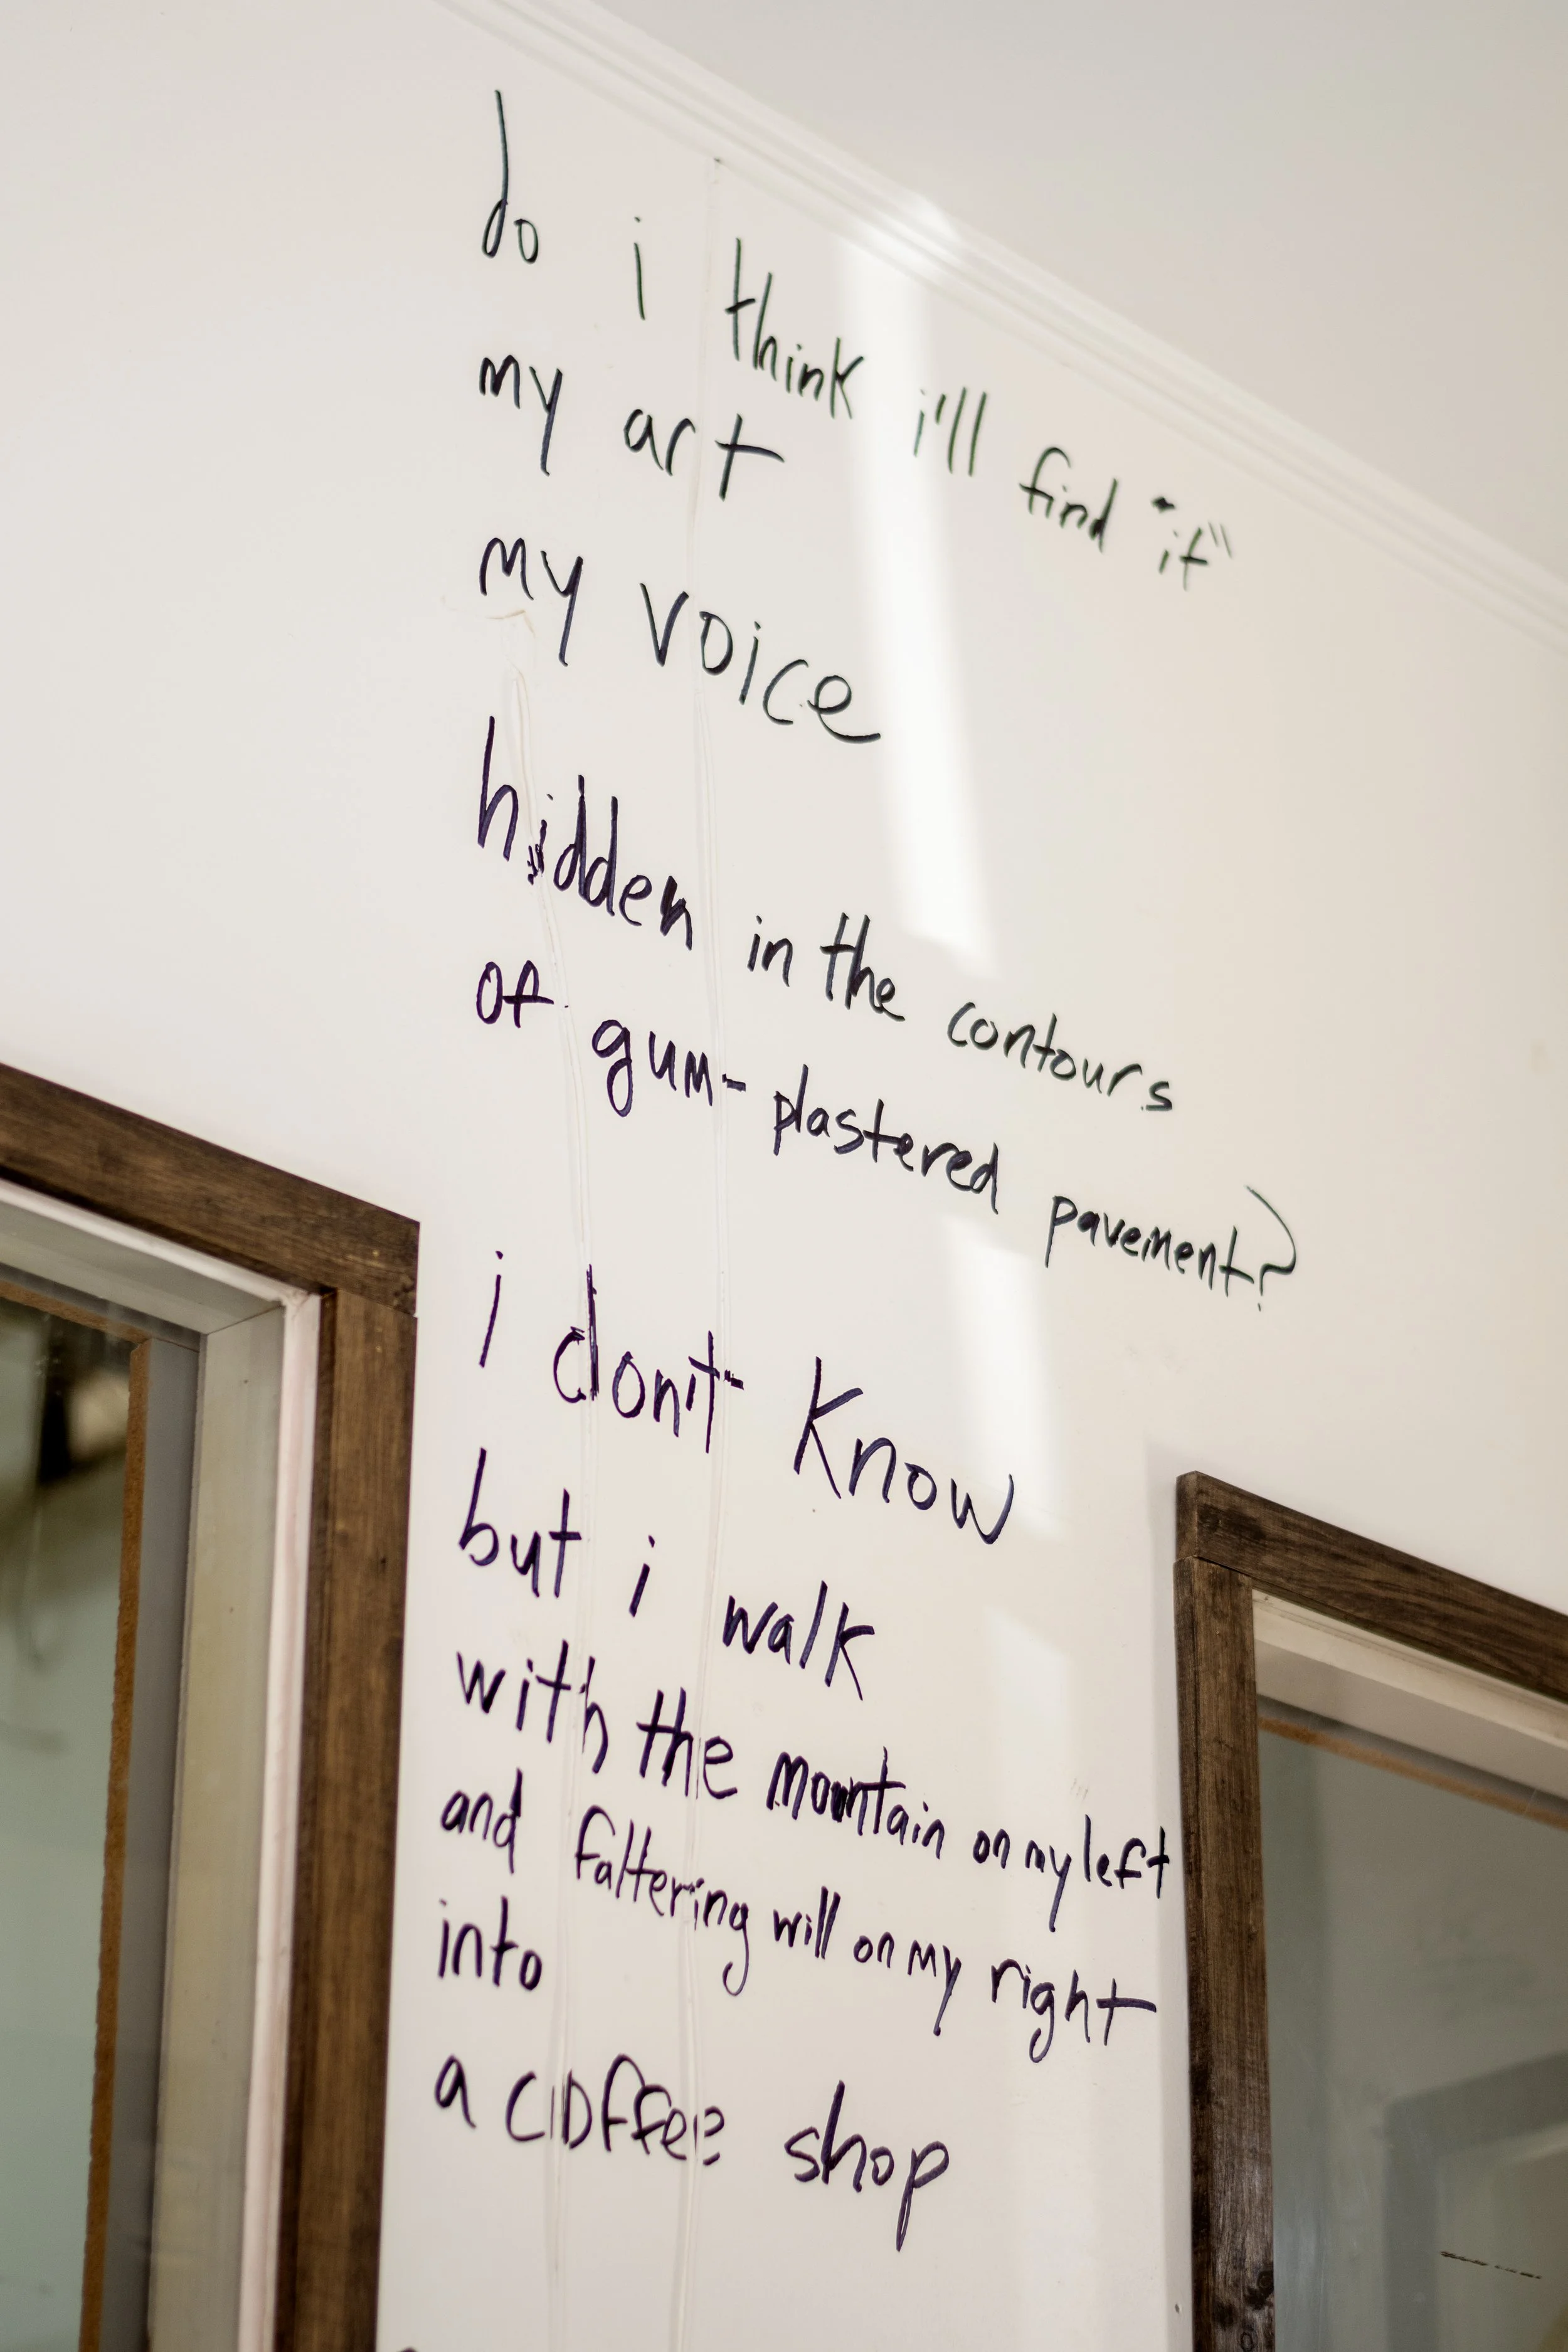 do i think i'll find "it"
my art
my voice
hidden in the contours
of gum-plastered pavement?
i don't know
but i walk
with the mountain on my left
and faltering will on my right
into
a coffee shop